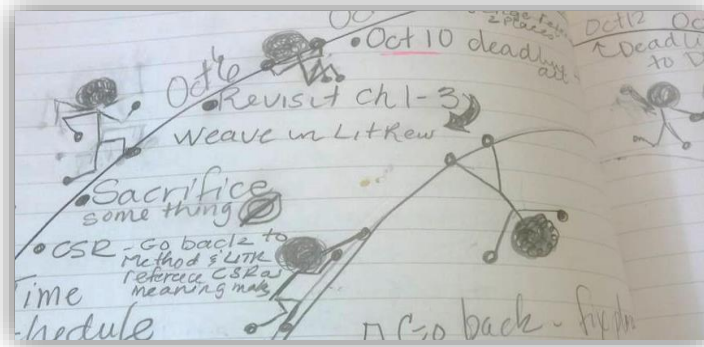 Oc
2 places
Oct 12 Oc
Oct 10 deadline
Oct 6
↑ Deadli
to D
Revisit Ch 1-3
Weave in LitRew
Sacrifice
some thing
CSR - Go back to
Method & LITR
reference CSR as
meaning mak
Time
chedule
Go back - fix